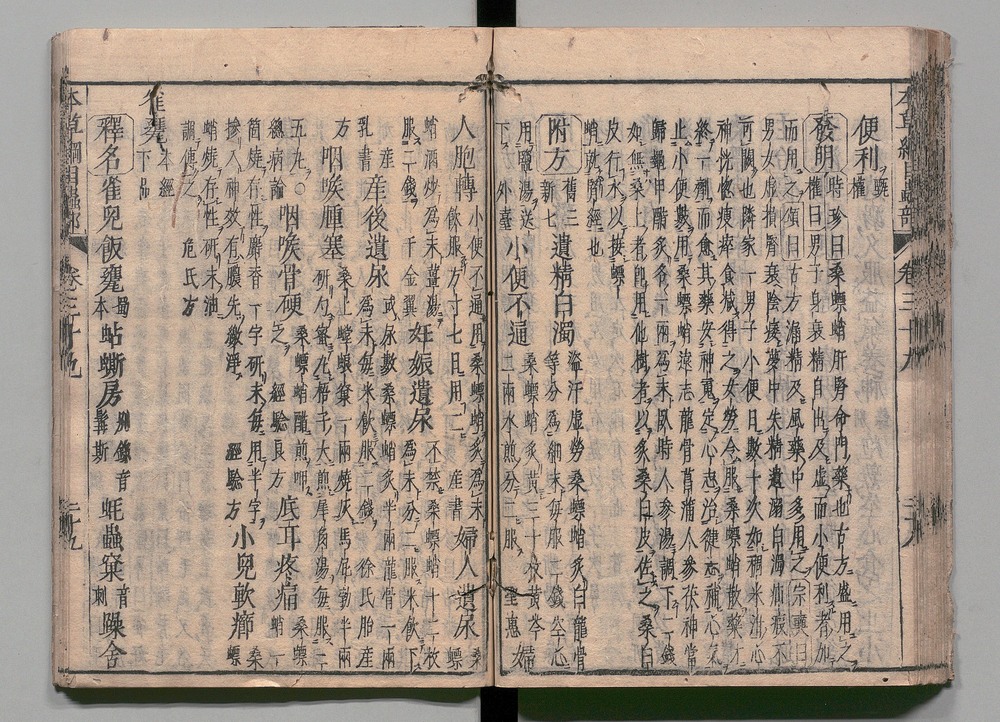 便利權
發明時珍曰桑螵蛸肝腎命門藥也古方盛用之
權曰男子身衰精自出及虛而小便利者加
而用之頌曰古方漏精及風藥中多用之宗奭曰
男女虛損腎衰陰痿夢中失精遺溺白濁疝瘕不
可闕也鄰家一男子小便日數十次如稠米泔心
神恍惚瘦瘁食減得之女勞令服桑螵蛸散藥
終一劑而愈其藥安神魂定心志治健忘補心氣
止小便數用桑螵蛸遠志龍骨菖蒲人參茯神當
歸龜甲醋炙各一兩為末臥時人參湯調下二錢
如無桑上者即用他樹者以炙桑白皮佐之桑白
皮行水以接螵
蛸就腎經也
附方舊三新七 遺精白濁 盜汗虛勞桑螵蛸炙白龍骨等分為細末每服二錢空心
用鹽湯送下外臺 小便不通 桑螵蛸炙黃三十枚黃芩二兩水煎分二服聖惠 婦
人胞轉 小便不通用桑螵蛸炙為末飲服方寸匕日用二產書 婦人遺尿 桑螵
蛸酒炒為末薑湯服二錢千金翼 妊娠遺尿 不禁桑螵蛸十二枚為末分二服米飲下
產乳書 產後遺尿 或尿數桑螵蛸炙半兩龍骨一兩為末每米飲服二錢徐氏胎產
方 咽喉腫塞 桑上螳螂窠一兩燒灰馬屁勃半兩研勻蜜丸梧子大煎犀角湯每服三
五丸總病論 咽喉骨硬 桑螵蛸醋煎呷之經驗良方 底耳疼痛 桑螵蛸一
箇燒存性麝香一字研末每用半字摻入神效有膿先繳淨經驗方 小兒軟癤 桑螵
蛸燒存性研末油調傅之危氏方
雀甕本經下品
釋名雀兒飯甕蜀本蛄蟖房別錄音髯斯蚝蟲窠音刺躁舍
本草綱目蟲部 卷三十九 二十九